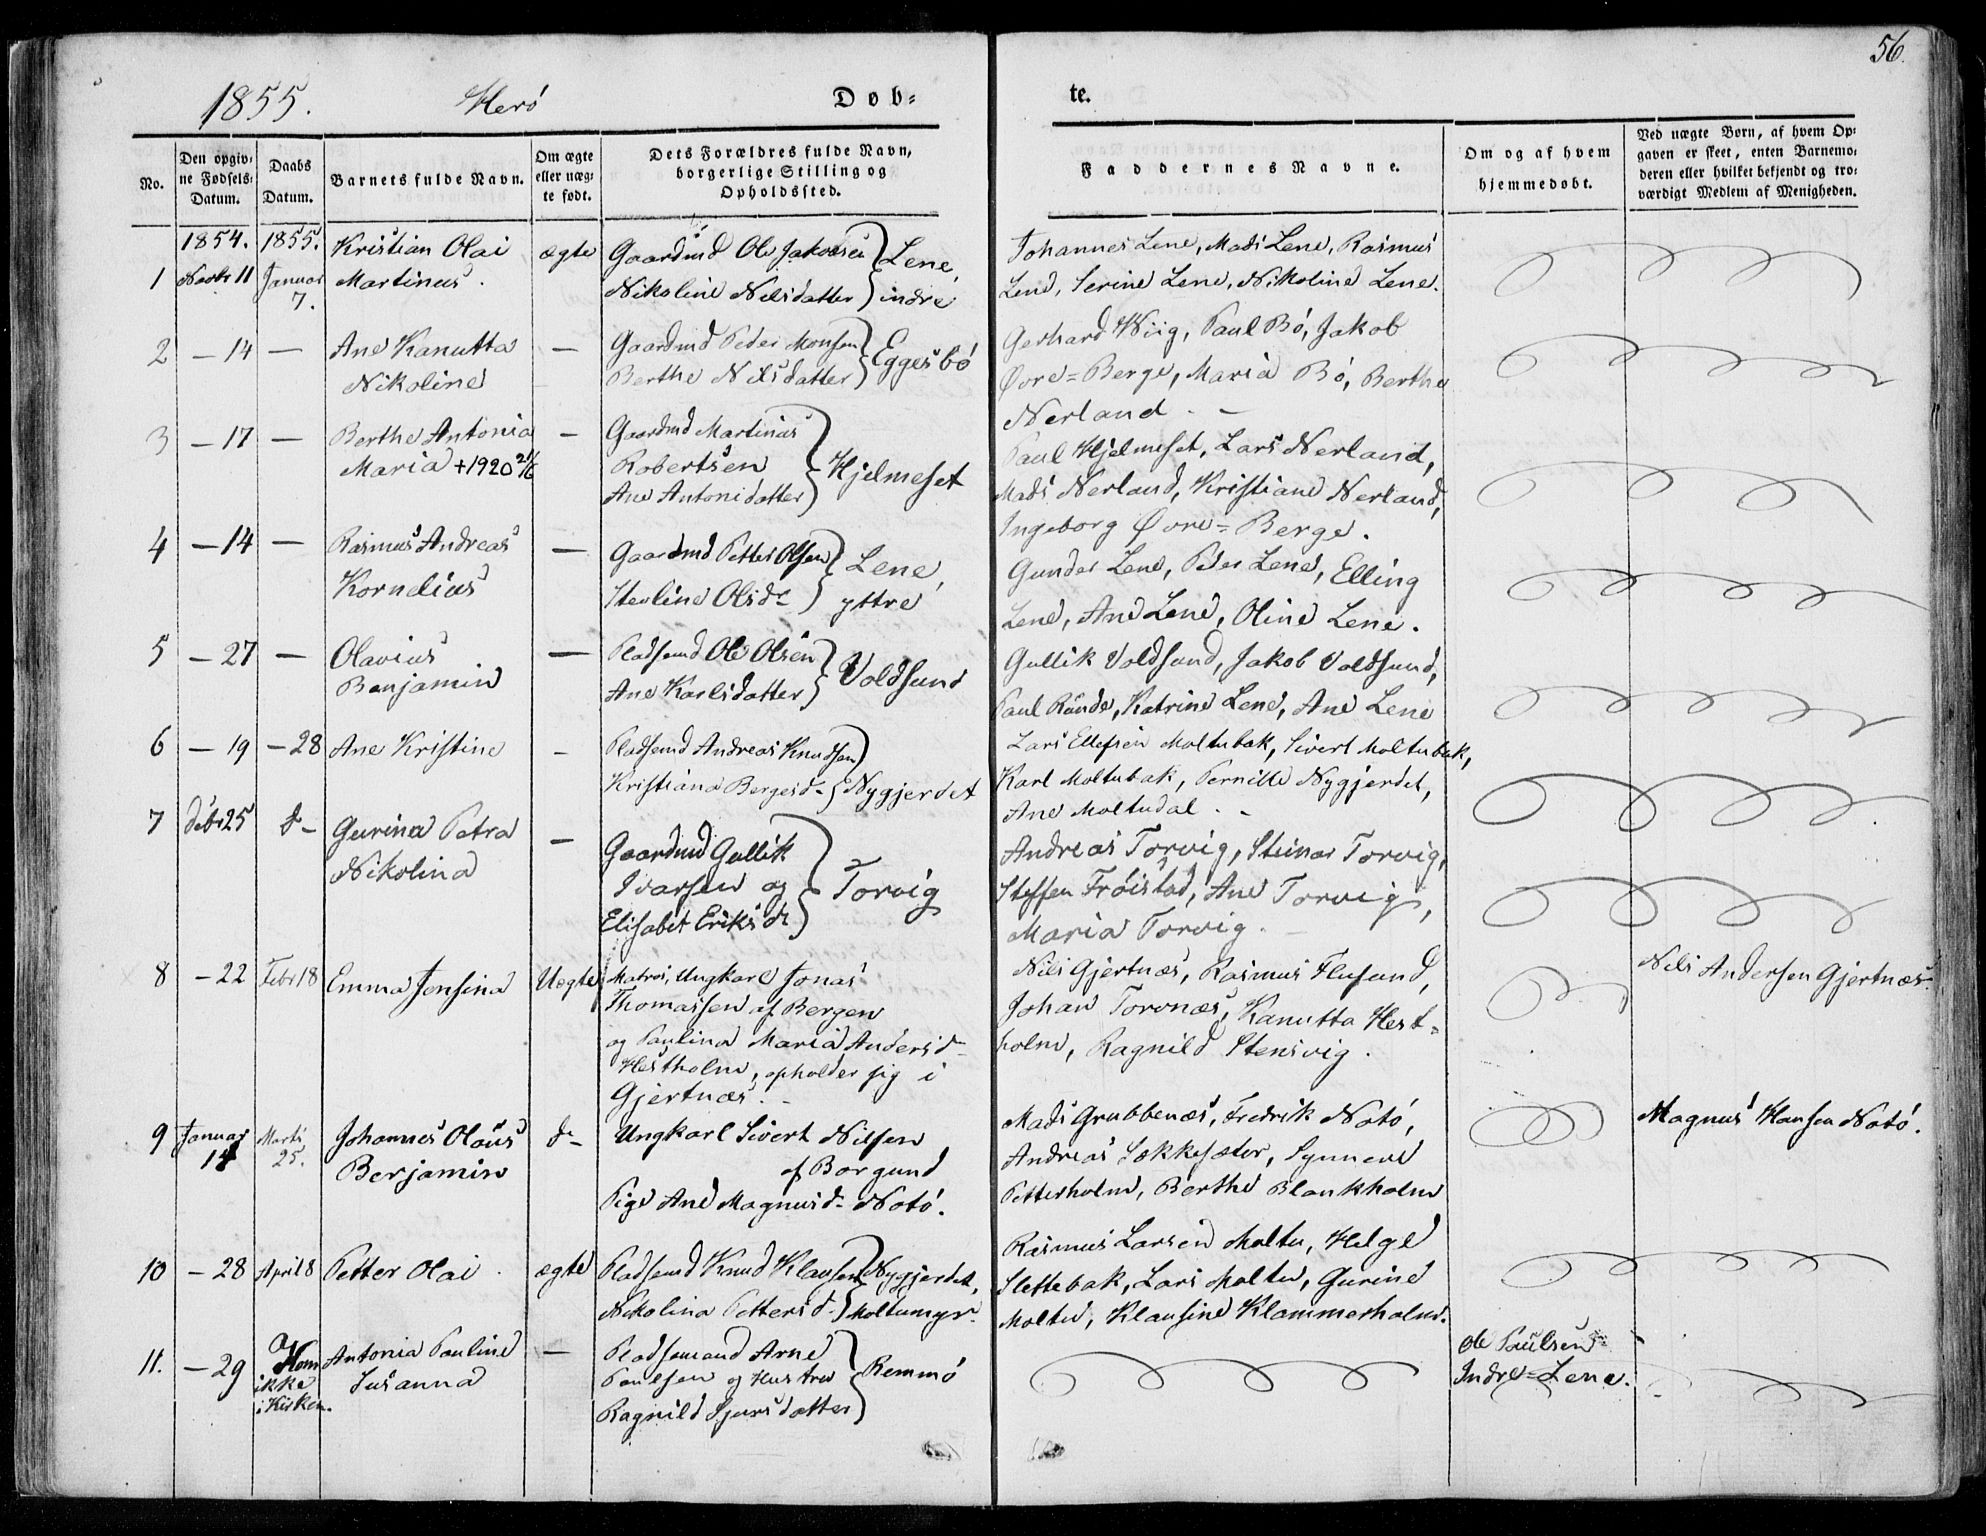 56.
1855. Herö Døb-te.
No.
Den opgiv-
ne Fødsels-
Datum.
Daabs
Datum.
Barnets fulde Navn.
Om ægte
eller uæg-
te født.
Dets Forældres fulde Navn,
borgerlige Stilling og
Opholdssted.
Faddernes Navne.
Om og af hvem
hjemmedøbt.
Ved uægte Børn, af hvem Op-
gaven er skeet, enten Barnemo-
deren eller hvilket bekjendt og tro-
værdigt Medlem af Menigheden.
1854. 1855.
1 Novbr 11 Januar 7.
Kristian Olai
Martinus.
ægte
Gaardmd Ole Jakobsen
Nikoline Nilsdatter
Lene,
indre
Johannes Lene, Mads Lene, Rasmus
Lene, Serine Lene, Nikoline Lene.
2 - 14 -
Ane Kanutta
Nikoline
-
Gaardmd Peder Monsen
Berthe Nilsdatter
Eggesbö
Gerhard Wiig, Paul Bö, Jakob
Øvre=Berge, Maria Bö, Berthe
Nerland. -
3 - 17 -
Berthe Antonia
Maria +1920 21/6
-
Gaardmd Martinus
Robertsen
Ane Antonidatter
Hjelmeset
Paul Hjelmeset, Lars Nerland,
Mads Nerland, Kristiane Nerland,
Ingeborg Øvre=Berge.
4 - 14 -
Rasmus Andreas
Kornelius
-
Gaardmd Petter Olsen
Olsd-
Lene,
yttre
Gunder Lene, Peder Lene, Elling
Lene, Ane Lene, Oline Lene.
5 - 27 -
Olavius
Benjamin
-
Pladsemd Ole Olsen
Ane Karlsdatter
Voldsund
Gullik Voldsund, Jakob Voldsund,
Paul Runde, Katrine Lene, Ane Lene
6 - 19 - 28
Ane Kristine
-
Pladsemd Andreas Knudsen
Kristiana Bergesd-
Nygjerdet
Lars Ellefsen Moltubak, Sivert Moltubak,
Karl Moltubak, Pernille Nygjerdet,
Ane Moltudal. -
7 Debr 25 d-
Gurina Petra
Nikolina
-
Gaardmd Gullik
Ivarsen og
Elisabet Eriksdr
Torvig
Andreas Torvig, Steinar Torvig,
Steffen Fröistad, Ane Torvig,
Maria Torvig. -
8 - 22 Febr 18
Emma Jensina
Uægte
Matros, Ungkarl Jonas
Thomassen af Bergen
og Paulina Maria Andersd-
Hestholm, opholder sig i
Gjertnæs. -
Nils Gjertnæs, Rasmus Flusund,
Johan Torvnæs, Kanutta Hest-
holm, Ragnild Stensvig.
Nils Andersen Gjertnæs.
9 Januar 14 Marts 25.
Johannes Olaus
Berjamin
d-
Ungkarl Sivert Nilsen
af Borgund
Pige Ane Magnusd- Notö.
Mads Grubbenæs, Fredrik Notö,
Andreas Sækkesæter, Synneve
Petterholm, Berthe Blankholm
Magnus Hansen Notö.
10 - 28 April 8
Petter Olai.
ægte
Pladsemd Knud Klausen
Nikolina Pettersd-
Nygjerdet,
Moltumyr.
Rasmus Larsen Moltu, Helge
Slettebak, Lars Moltu, Gurine
Moltu, Klausine Klammerholm.
11. - 29
Kom
ikke
i Kirken.
Antonia Pauline
Susanna
-
Pladsemand Arne
Paulsen og Hustru
Ragnild Sjursdatter
Remmö
Ole Paulsen
Indre=Lene.